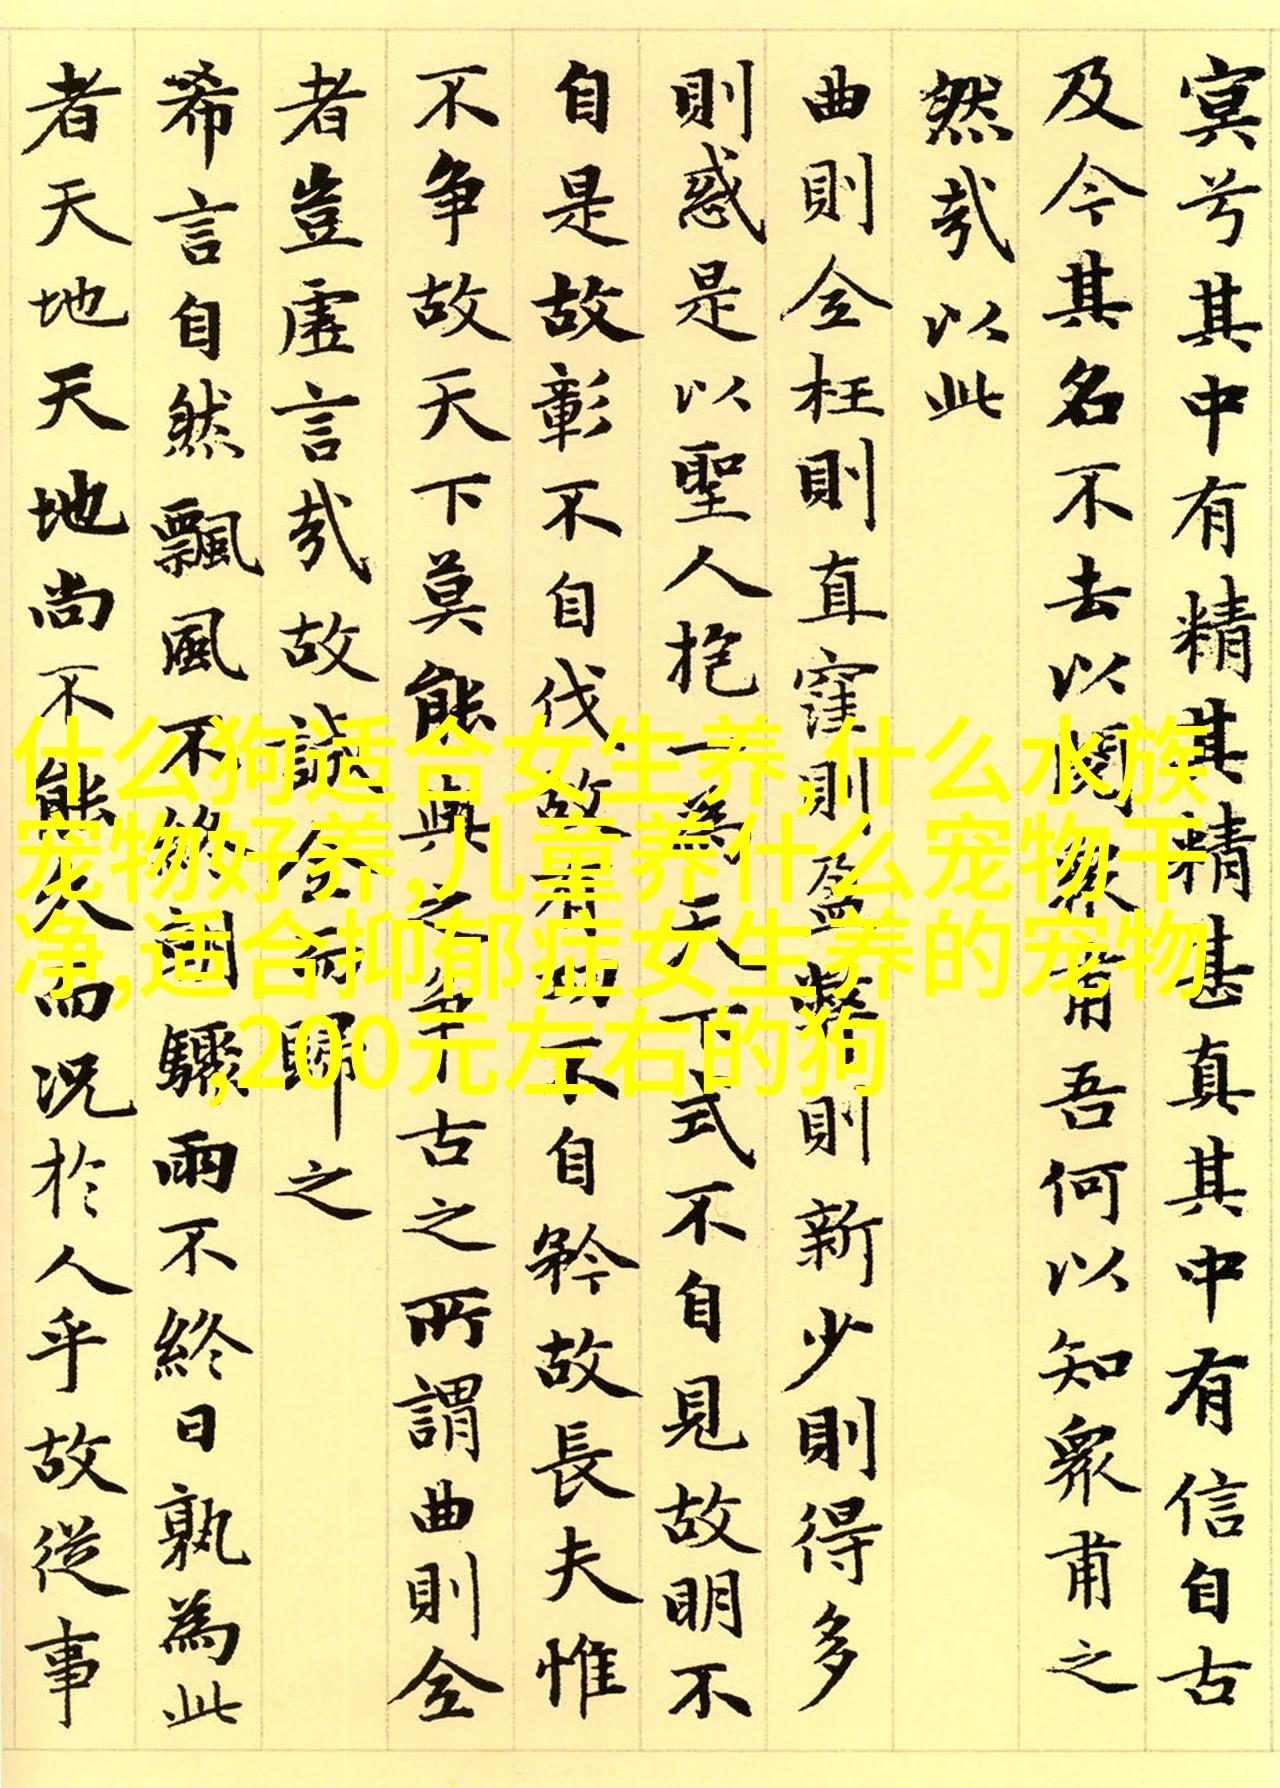 冥兮其中有精其精甚真其中有信自古
及今其名不去以閱衆甫吾何以知衆甫之
然哉以此
曲則全枉則直窪則盈弊則新少則得多
則惑是以聖人抱一為天下式不自見故明不
自是故彰不自伐故有功不自矜故長夫惟
不争故天下莫能與之争古之所謂曲則全
者豈虛言哉故誠全而歸之
希言自然飄風不終朝驟雨不終日孰為此
者天地天地尚不能久而况於人乎故從事
什么狗适合女生养,什么水族
宠物好养,儿童养什么宠物干
净,适合抑郁症女生养的宠物
,200元左右的狗